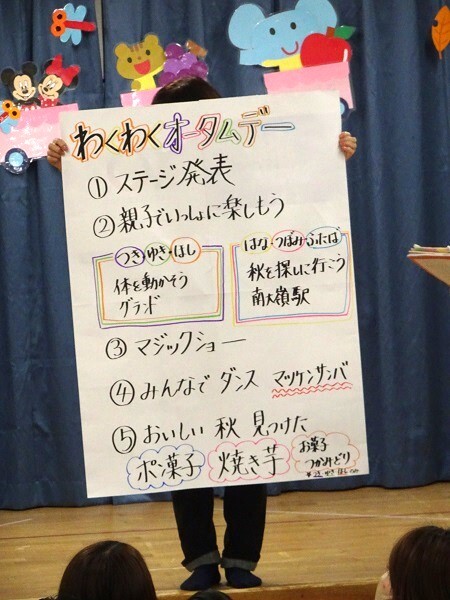 わくわくオータムデー
① ステージ発表
② 親子でいっしょに楽しもう
つき・ゆき・ほし
体を動かそう
グランド
はな・つぼみ・ふたば
秋を探しに行こう
南大嶺駅
③ マジックショー
④ みんなで ダンス マツケンサンバ
⑤ おいしい 秋 見つけた
ポン菓子 焼き芋
お菓子
つかみどり